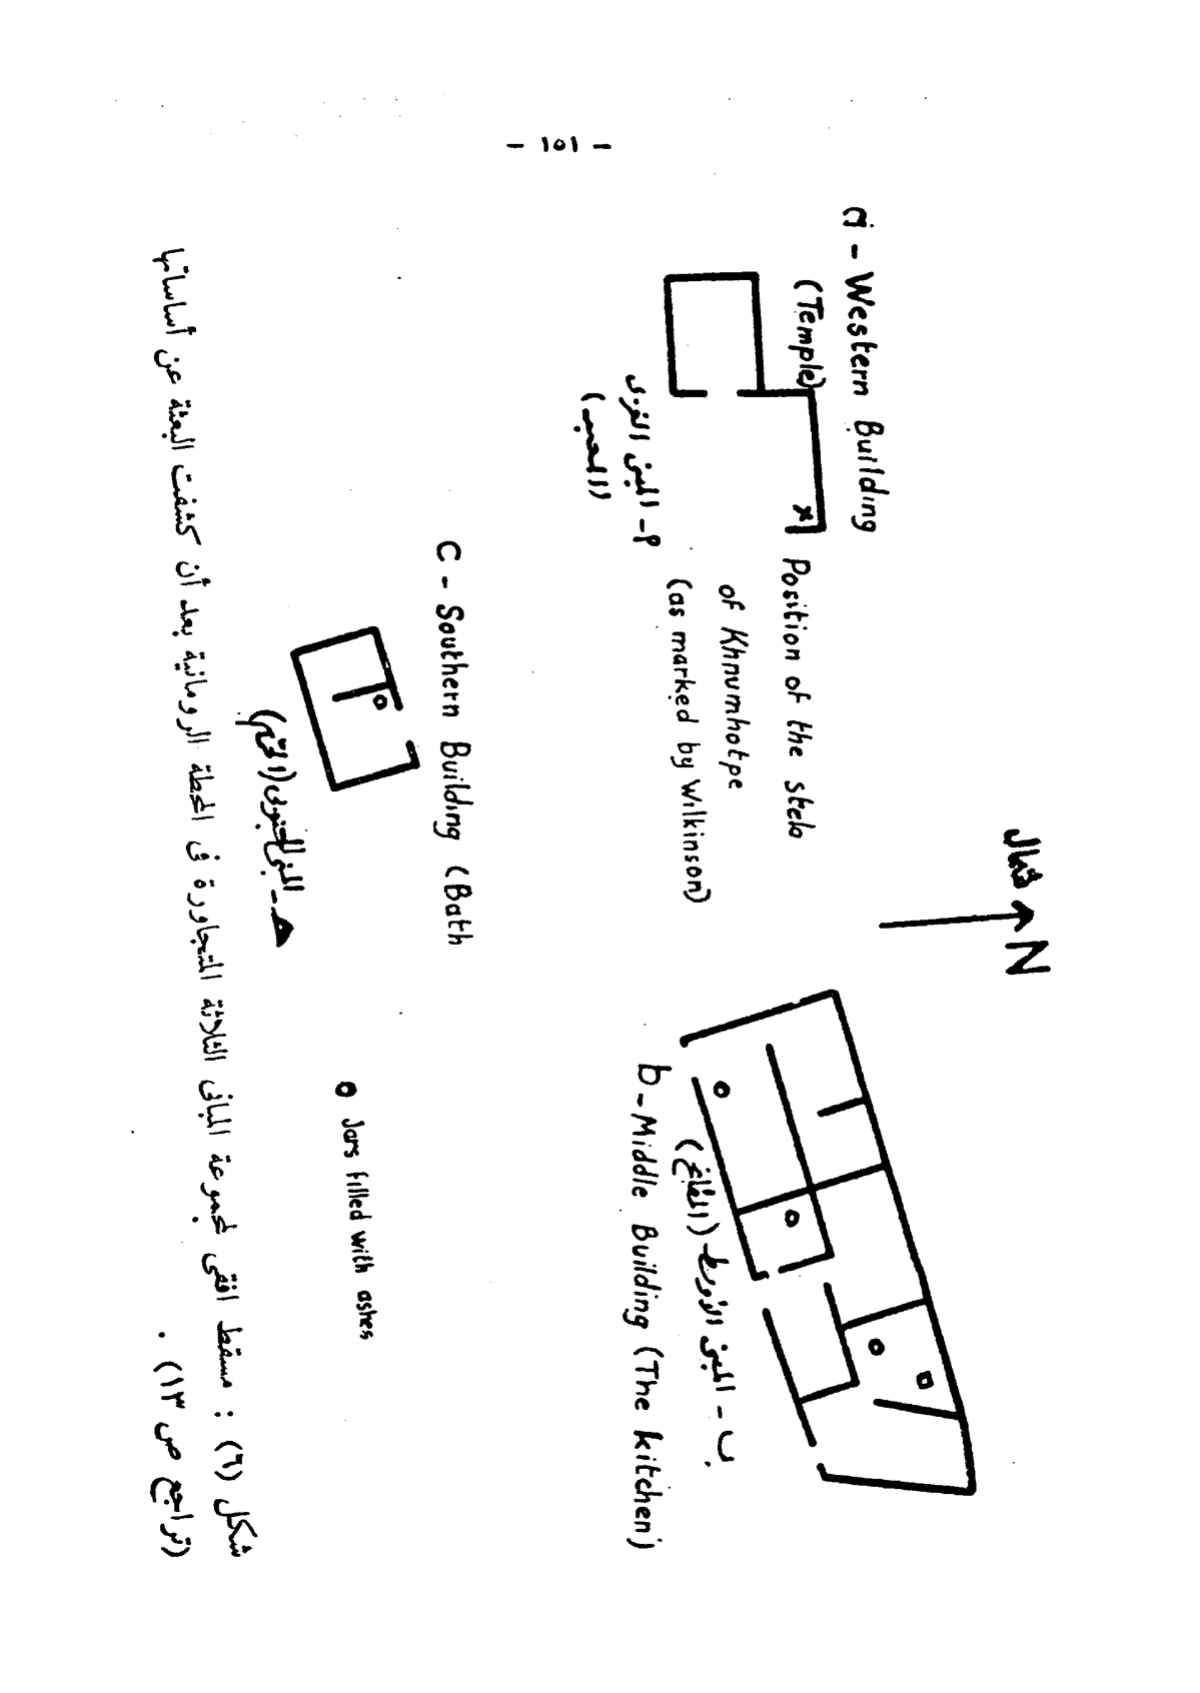 - ١٥١ -
شمال
N
a - Western Building
(Temple)
Position of the stela
of Khnumhotpe
(as marked by Wilkinson)
أ - المبنى الغربى
b - Middle Building (The kitchen)
ب - المبنى الأوسط
C - Southern Building (Bath
المبنى الجنوبى
Jars filled with ashes
شكل (٦) : مسقط افقى لمجموعة المبانى الثلاثة المتجاورة فى المحطة الرومانية بعد أن كشفت البعثة عن أساساتها
(تراجع ص ١٣) .